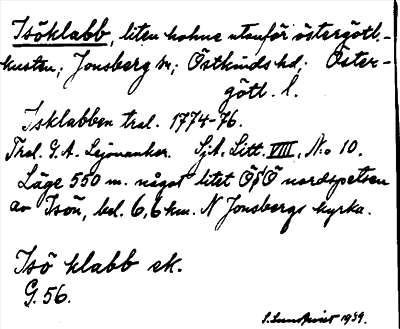 Isöklabb, liten holme utanför östergötl.-
kusten; Jonsberg sn; Östkinds hd; Öster-
götl. l.
Isklabben tral. 1774-76.
Thal. G. A. Lejonanker. Sjk. Litt. VIII, N:o 10.
Läge 550 m. något litet ÖSÖ nordspetsen
av Isön, bel. 6,6 km. N Jonsbergs kyrka.
Isö klabb ek.
G. 56.
S. Lundqvist 1939.